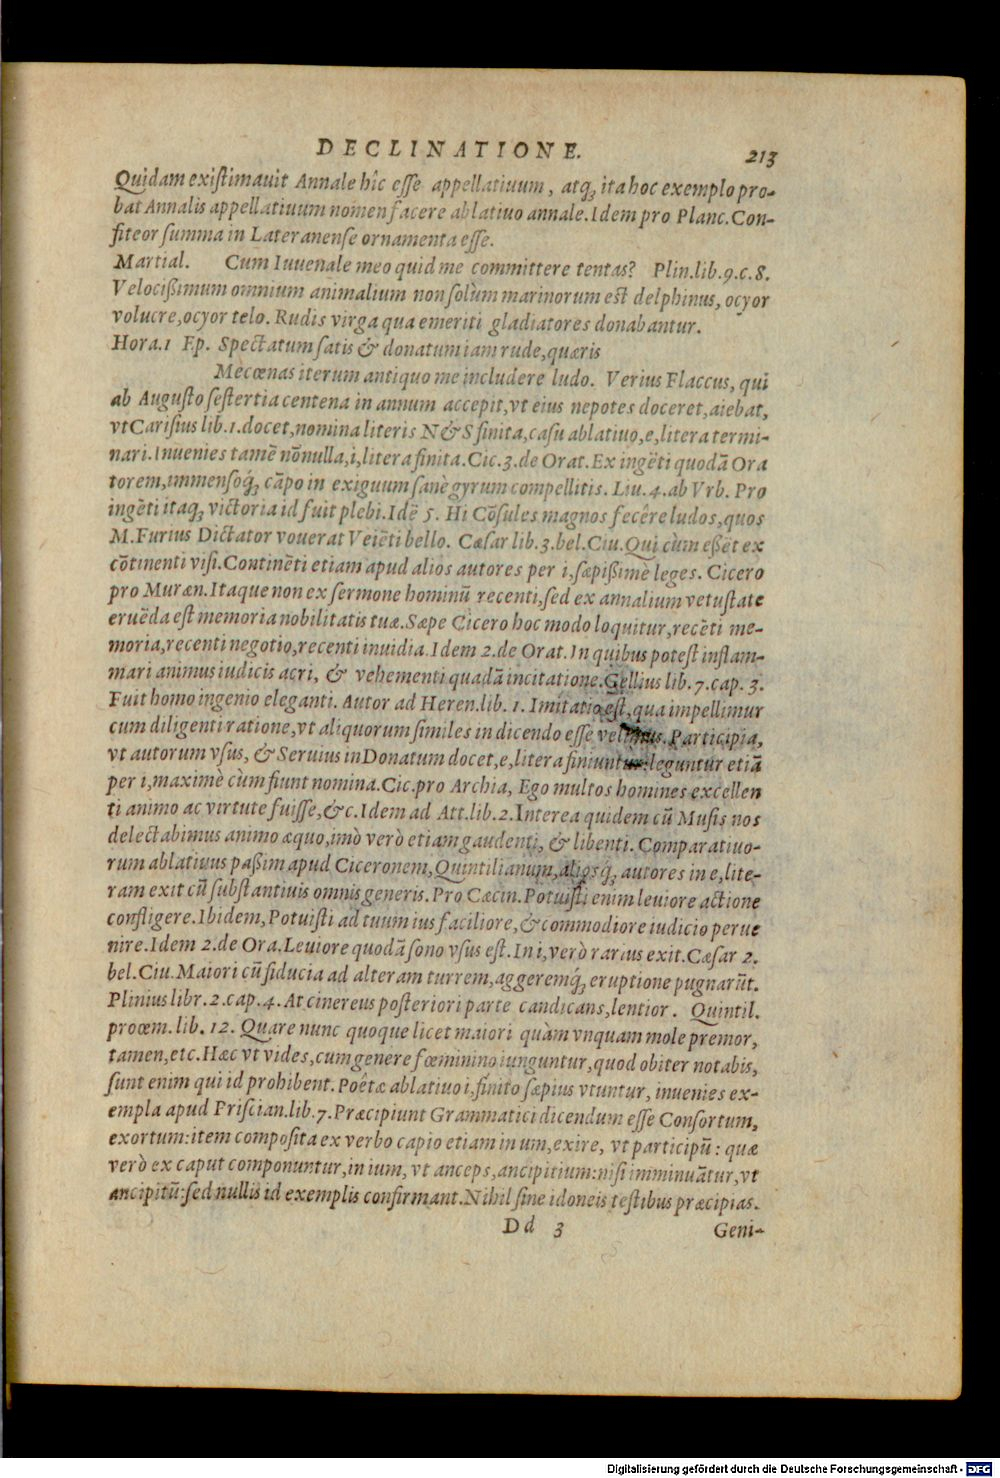 DECLINATIONE. 213
Quidam existimauit Annale hîc esse appellatiuum, atq́; ita hoc exemplo pro-
bat Annalis appellatiuum nomen facere ablatiuo annale. Idem pro Planc. Con-
fiteor summa in Lateranense ornamenta esse.
Martial. Cum Iuuenale meo quid me committere tentas? Plin. lib. 9. c. 8.
Velocißimum omnium animalium non solùm marinorum est delphinus, ocyor
volucre, ocyor telo. Rudis virga qua emeriti gladiatores donabantur.
Hora. 1 Ep. Spectatum satis & donatum iam rude, quæris
Mecœnas iterum antiquo me includere ludo. Verius Flaccus, qui
ab Augusto sestertia centena in annum accepit, vt eius nepotes doceret, aiebat,
vt Carisius lib. 1. docet, nomina literis N & S finita, casu ablatiuo, e, litera termi-
nari. Inuenies tamē nōnulla, i, litera finita. Cic. 3. de Orat. Ex ingēti quodā Ora
torem, immensoq́; cāpo in exiguum sanè gyrum compellitis. Liu. 4. ab Vrb. Pro
ingēti itaq; victoria id fuit plebi. Idē 5. Hi Cōsules magnos fecêre ludos, quos
M. Furius Dictator vouerat Veiēti bello. Cæsar lib. 3. bel. Ciu. Qui cùm eßēt ex
cōtinenti visi. Continēti etiam apud alios autores per i, sæpißimè leges. Cicero
pro Muræn. Itaque non ex sermone hominū recenti, sed ex annalium vetustate
eruēda est memoria nobilitatis tuæ. Sæpe Cicero hoc modo loquitur, recēti me-
moria, recenti negotio, recenti inuidia. Idem 2. de Orat. In quibus potest inflam-
mari animus iudicis acri, & vehementi quadā incitatione. Gellius lib. 7. cap. 3.
Fuit homo ingenio eleganti. Autor ad Heren. lib. 1. Imitatio est, qua impellimur
cum diligenti ratione, vt aliquorum similes in dicendo esse velimus. Participia,
vt autorum vsus, & Seruius in Donatum docet, e, litera finiuntur: leguntur etiā
per i, maximè cùm fiunt nomina. Cic. pro Archia, Ego multos homines excellen
ti animo ac virtute fuisse, &c. Idem ad Att. lib. 2. Interea quidem cū Musis nos
delectabimus animo æquo, imò verò etiam gaudenti, & libenti. Comparatiuo-
rum ablatiuus paßim apud Ciceronem, Quintilianum, aliosq́; autores in e, lite-
ram exit cū substantiuis omnis generis. Pro Cæcin. Potuisti enim leuiore actione
confligere. Ibidem, Potuisti ad tuum ius faciliore, & commodiore iudicio perue
nire. Idem 2. de Ora. Leuiore quodā sono vsus est. In i, verò rarius exit. Cæsar 2.
bel. Ciu. Maiori cū fiducia ad alteram turrem, aggeremq́; eruptione pugnarūt.
Plinius libr. 2. cap. 4. At cinereus posteriori parte candicans, lentior. Quintil.
proœm. lib. 12. Quare nunc quoque licet maiori quàm vnquam mole premor,
tamen, etc. Hæc vt vides, cum genere fœminino iunguntur, quod obiter notabis,
sunt enim qui id prohibent. Poêtæ ablatiuo i, finito sæpius vtuntur, inuenies ex-
empla apud Priscian. lib. 7. Præcipiunt Grammatici dicendum esse Consortum,
exortum: item composita ex verbo capio etiam in um, exire, vt participū: quæ
verò ex caput componuntur, in ium, vt anceps, ancipitium: nisi imminuātur, vt
ancipitū: sed nullis id exemplis confirmant. Nihil sine idoneis testibus præcipias.
Dd 3 Geni-
Digitalisierung gefördert durch die Deutsche Forschungsgemeinschaft - DFG